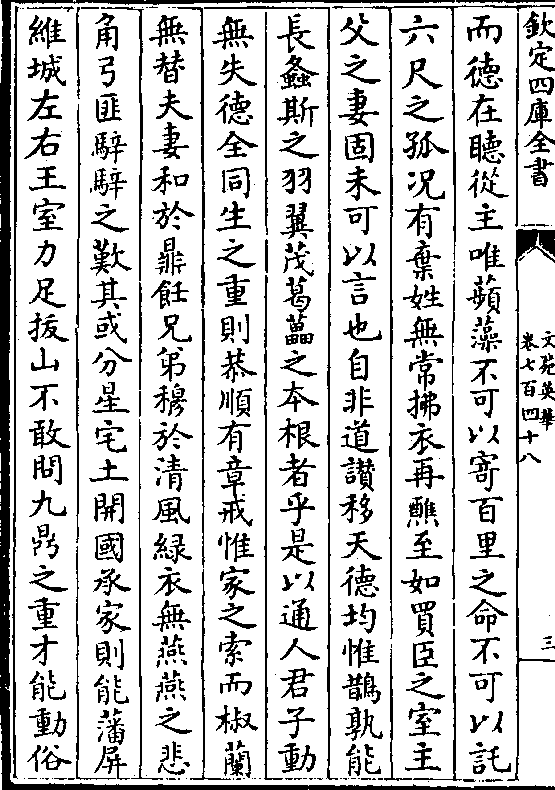 欽定四庫全書
文苑英華
卷七百四十八
三
而德在聽從主唯蘋藻不可以寄百里之命不可以託
六尺之孤况有棄姓無常拂衣再醮至如買臣之室主
父之妻固未可以言也自非道讃移天德均惟鵲孰能
長螽斯之羽翼茂葛藟之本根者乎是以通人君子動
無失德全同生之重則恭順有章戒惟家之索而椒蘭
無替夫妻和於鼎飪兄弟穆於清風緑衣無燕燕之悲
角弓匪騂騂之歎其或分星宅土開國承家則能藩屏
維城左右王室力足拔山不敢問九鼎之重才能動俗